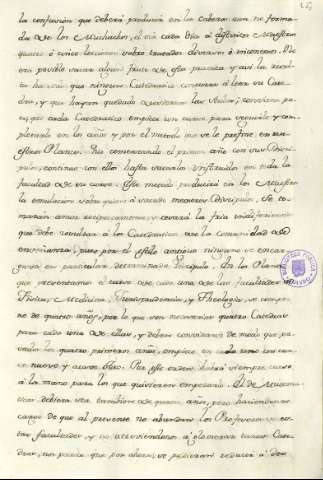 la confusion que deberá producir en las cabezas aun no forma-
das de los Muchachos, el oir cada dia á distintos Maestros
quatro ó cinco lecciones sobre tratados diversos é inconexos. No
era posible sacar algun fruto de esta practica y asi la resul-
ta
que ningun Catedratico comienze á leer su Cate-
dra, y que hayan quedado desiertas las Aulas; conviene pu-
es, que cada Catedratico empieze un curso para seguirle y con-
cluirlo en los años y por el metodo que se le prefixe en nu-
estros Planes. Que comenzando el primer año con sus Disci-
pulos, continue con ellos hasta sacarlos instruidos en toda la
facultad de su curso. Este metodo producirá en los Maestros
la emulacion sobre quien á sacado mejores Discipulos. Se to-
marán amor reciprocamente, y cesará la fria indiferencia
que debe resultar á los Catedraticos de la comunidad de
enseñanza; pues por el estilo antiguo ninguno se encar-
gava en particular de determinado Discipulo. En los Planes
que presentamos el curso de cada una de las facultades de
Fisica, Medicina, Jurisprudencia, y Theologia se compo-
ne de quatro años, por lo que son necesarias quatro Catedras
para cada una de ellas, y deben combinarse de modo que pa-
sados los quatro primeros años, empieze en cada uno un cur-
so nuevo y acave otro. Por este orden habrá siempre curso
á la mano para los que quisieren empezarlo. El de Matema-
ticas debiera ser tambien de quatro años, pero haciendonos
cargo de que al presente no abundan los Profesores de es-
tas facultades, y no atreviendonos á
tantas Cate-
dras, nos parece que por ahora se pudieran reducir á dos
BIBLIOTECA PUBLICA